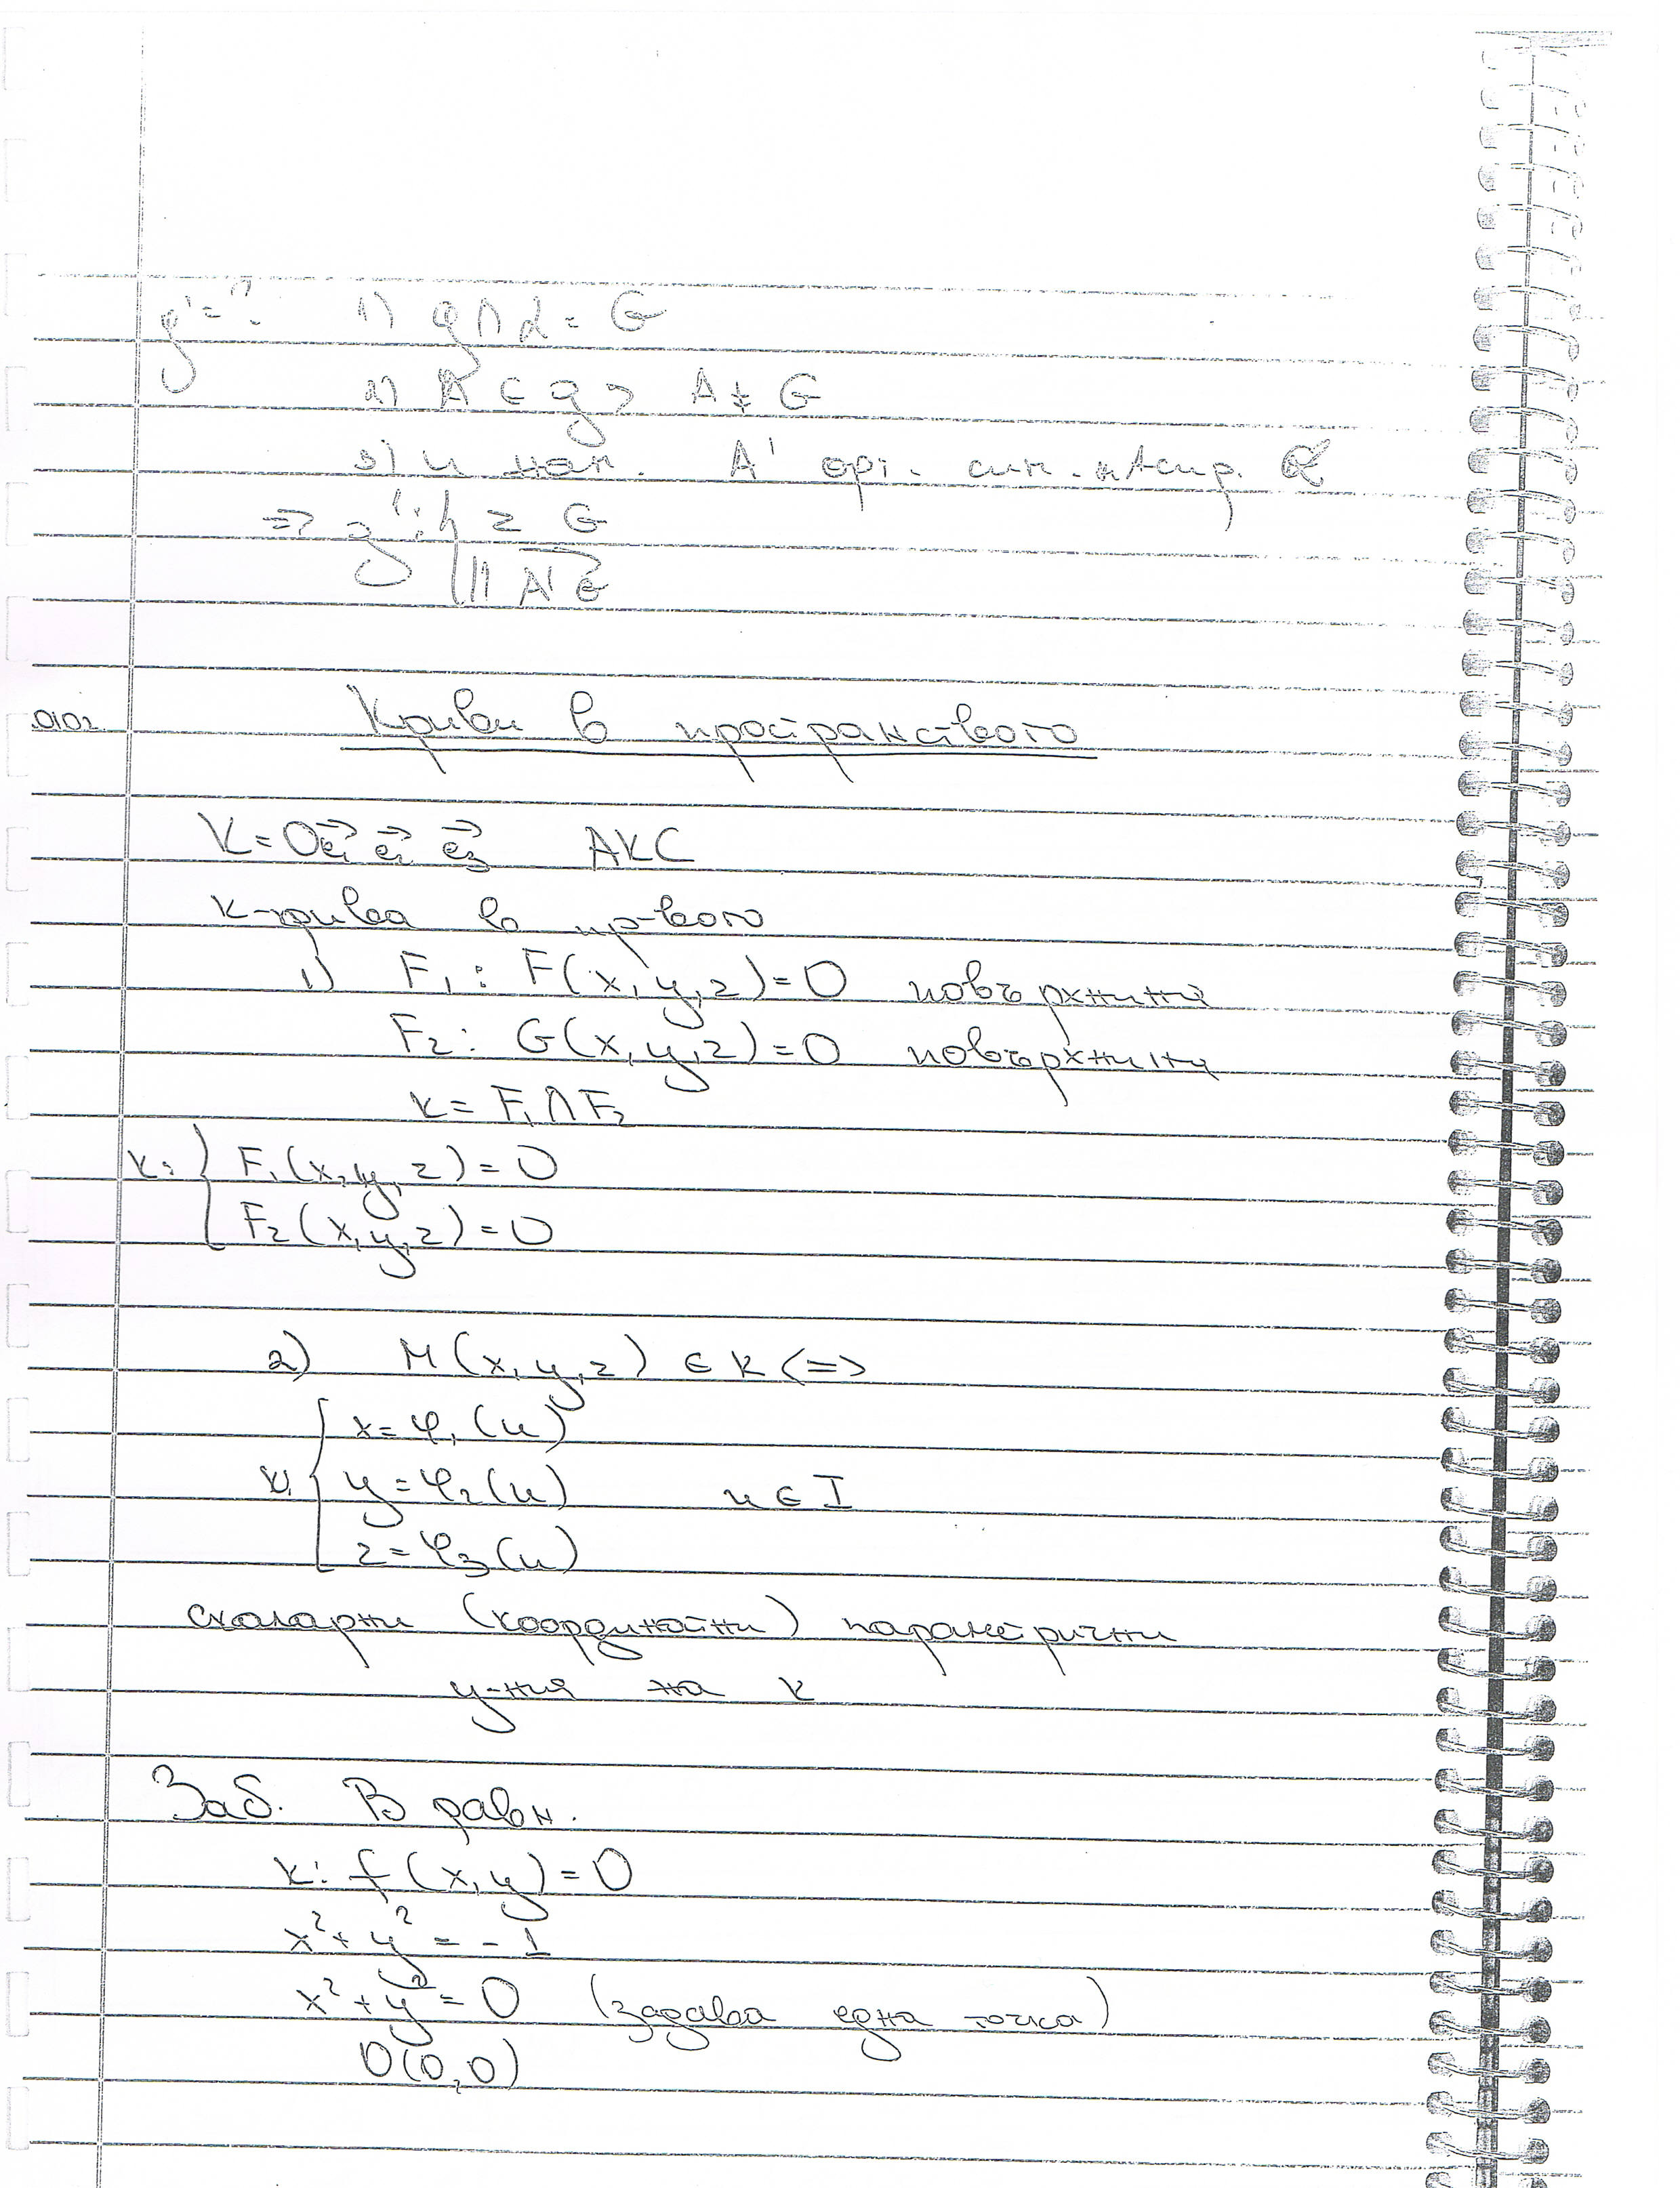 g' = ?. 1) g ∩ α = G
2) A ∈ g, A ≠ G
3) и нам. A' орт. сим. на A спр. α
=> g': { z G
|| A'G→
0102. Криви в пространството
K = Oe₁→ e₂→ e₃→ АКС
к-крива в пр-вото
1) F₁: F(x, y, z) = 0 повърхнина
F₂: G(x, y, z) = 0 повърхнина
к = F₁ ∩ F₂
к: { F₁(x, y, z) = 0
F₂(x, y, z) = 0
2) M(x, y, z) ∈ к <=>
x = φ₁(u)
к: { y = φ₂(u) u ∈ I
z = φ₃(u)
скаларни (координатни) параметрични
у-ния на к
Заб. В равн.
к: f(x, y) = 0
x² + y² = -1
x² + y² = 0 (задава една точка)
O(0,0)